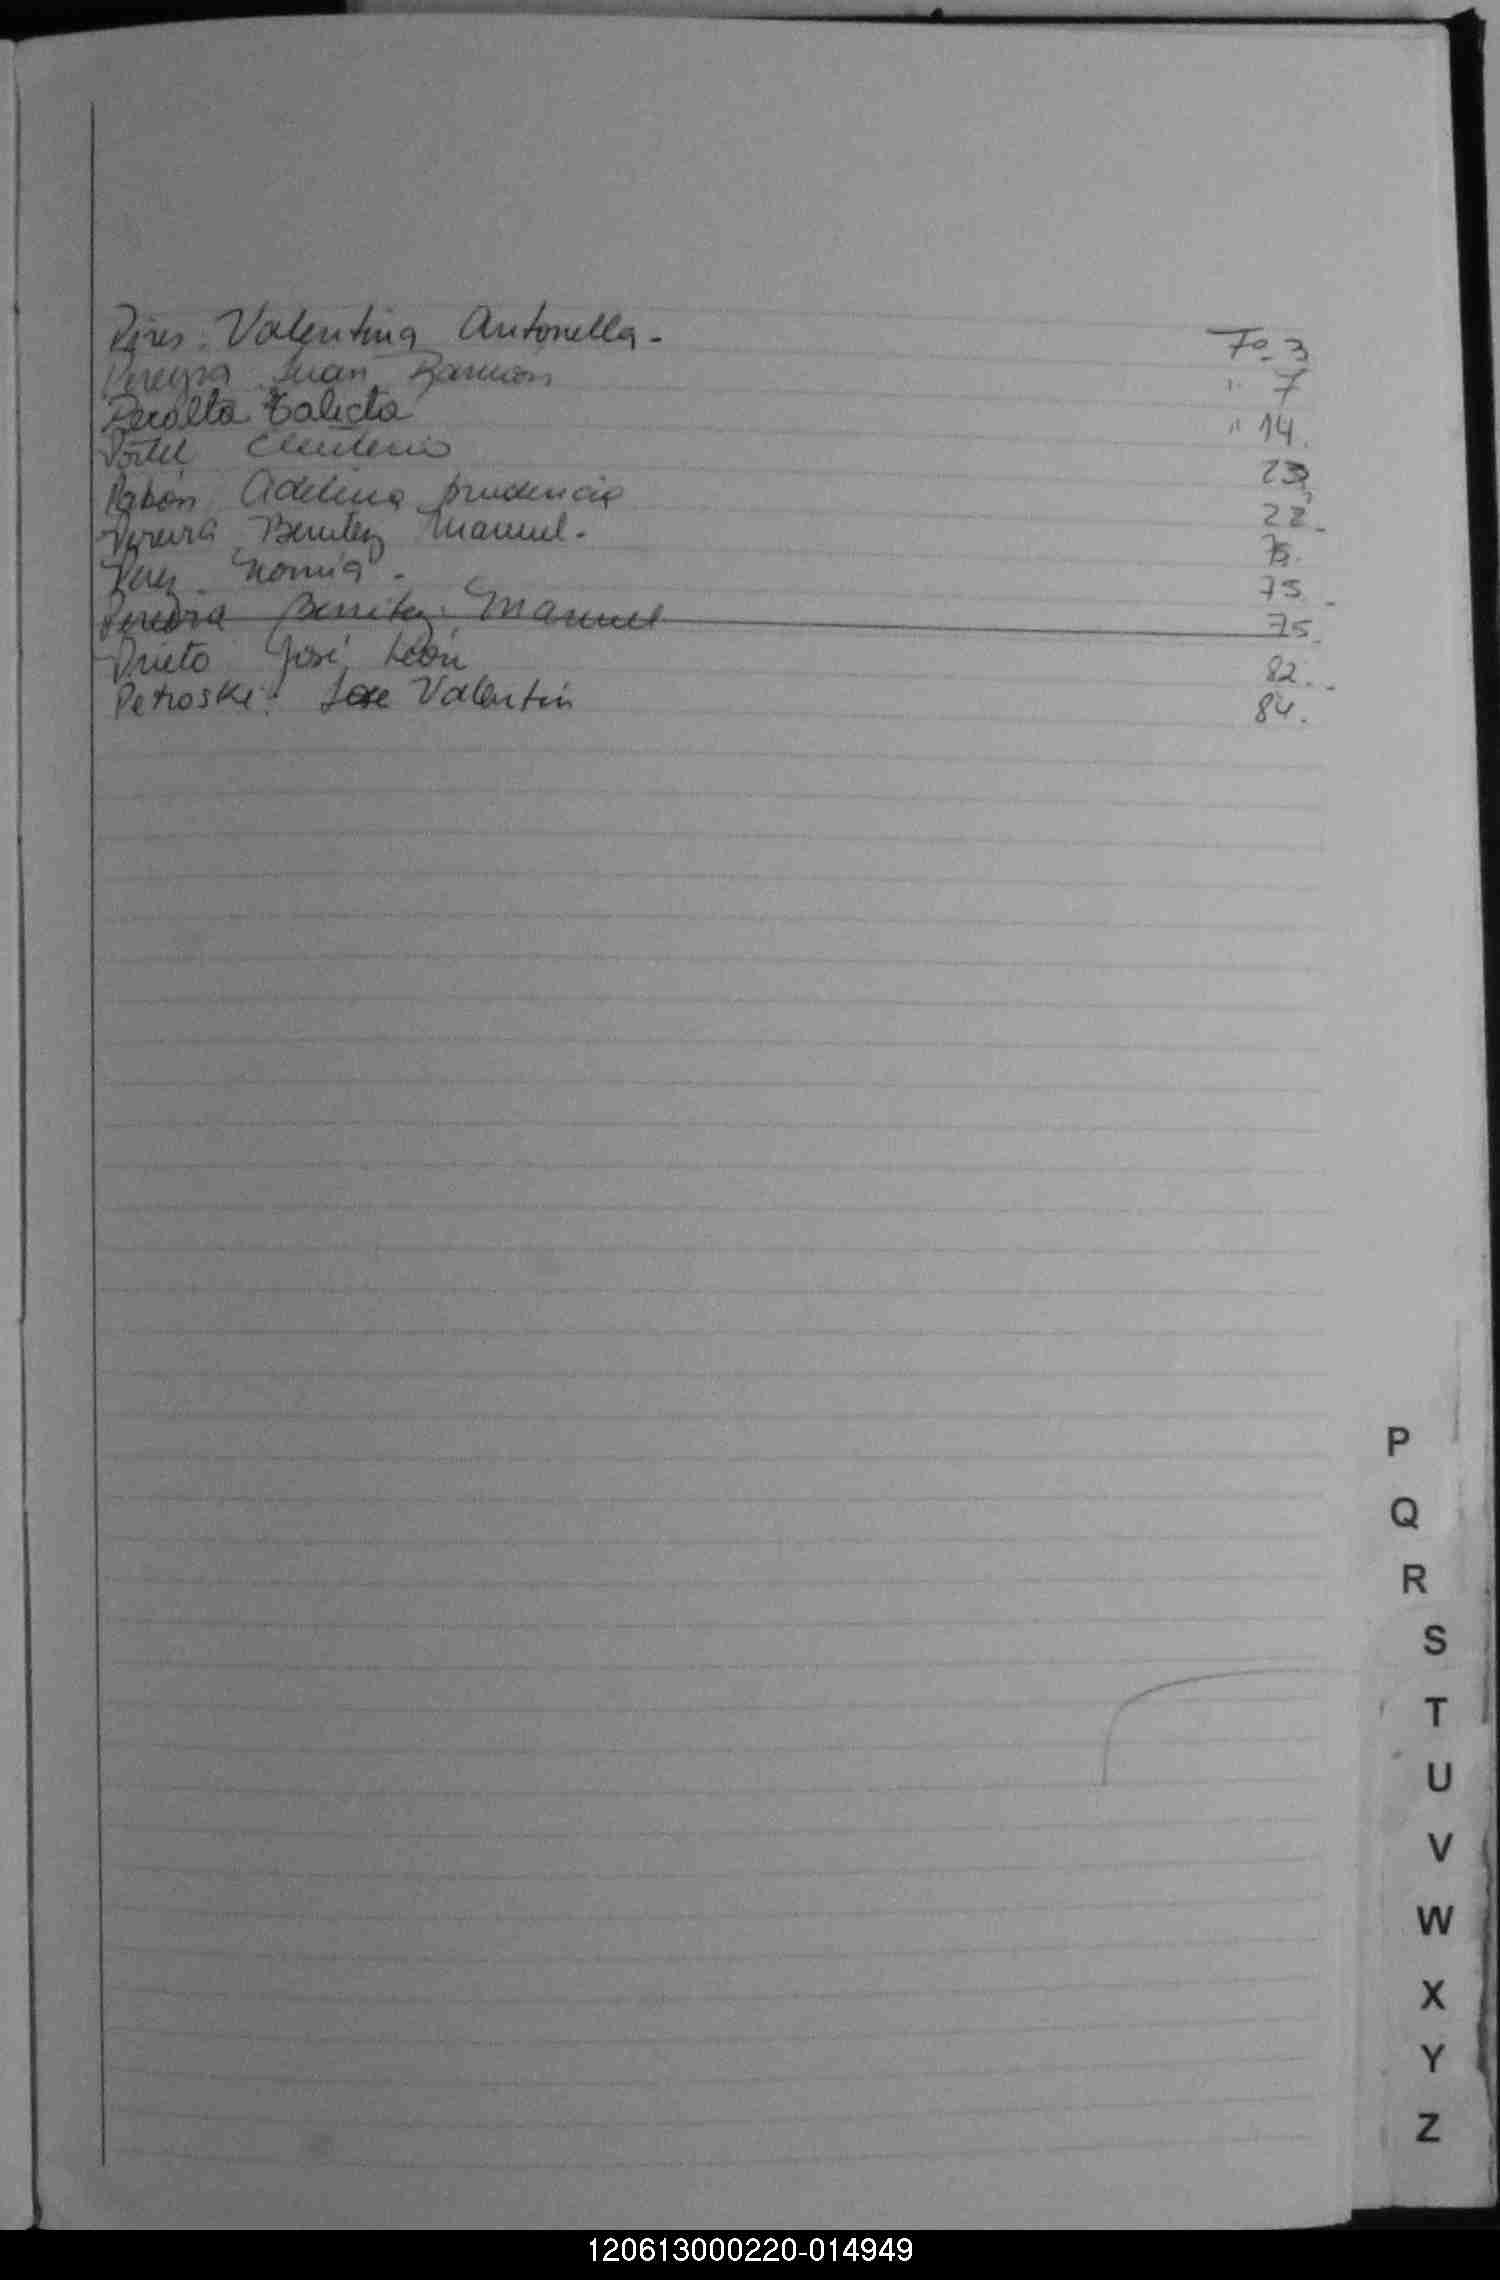 Pires. Valentina Antonella. Fo. 3
Pereyra Juan Ramon " 7
Peralta Calicta " 14.
Portel 23
Pabon Adelina prudencia 22.
Pereira Benitez Manuel. 75.
Perez Nomia. 75.
Pereira Benitez Manuel 75.
Prieto José León 82.
Petroski Jose Valentin 84.
P
Q
R
S
T
U
V
W
X
Y
Z
120613000220-014949